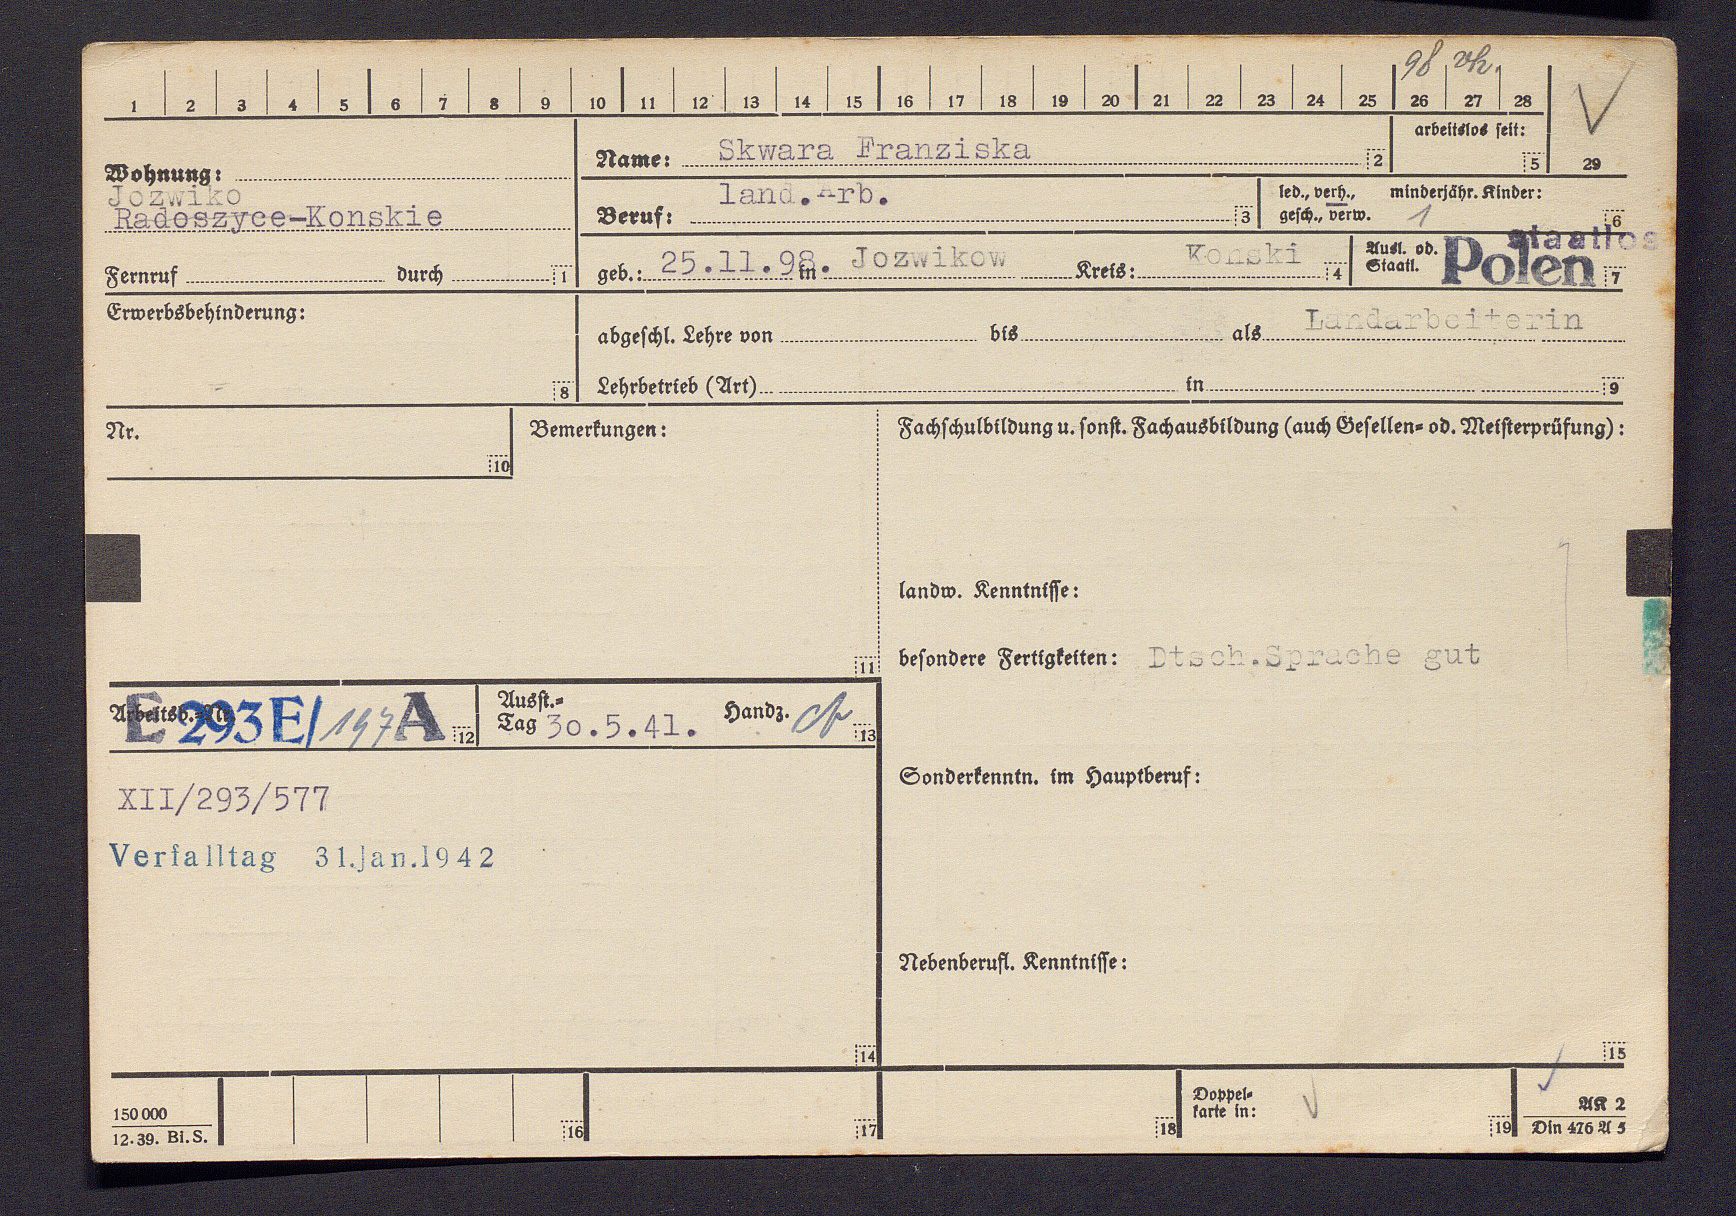 98 vh.
1 2 3 4 5 6 7 8 9 10 11 12 13 14 15 16 17 18 19 20 21 22 23 24 25 26 27 28
29
Wohnung:
Jozwiko
Radoszyce-Konskie
Fernruf durch 1
Name: Skwara Franziska 2
arbeitslos seit:
5
Beruf: land.Arb. 3
led., verh., minderjähr. Kinder:
gesch., verw. 1 6
geb.: 25.11.98. in Jozwikow Kreis: Konski 4
Ausl. od.
Staatl. Polen staatlos 7
Erwerbsbehinderung:
8
abgeschl. Lehre von bis als Landarbeiterin
Lehrbetrieb (Art) in 9
Nr.
10
Bemerkungen:
11
Fachschulbildung u. sonst. Fachausbildung (auch Gesellen- od. Meisterprüfung):
landw. Kenntnisse:
besondere Fertigkeiten: Dtsch.Sprache gut
Sonderkenntn. im Hauptberuf:
Nebenberufl. Kenntnisse:
15
Arbeitsb.-Nr.
E 293E/197 A 12
Ausst.-
Tag 30.5.41. Handz. 13
XII/293/577
Verfalltag 31.Jan.1942
14
150 000
12.39. Bi.S.
16
17
18
Doppel-
karte in:
19
AK 2
Din 476 A 5